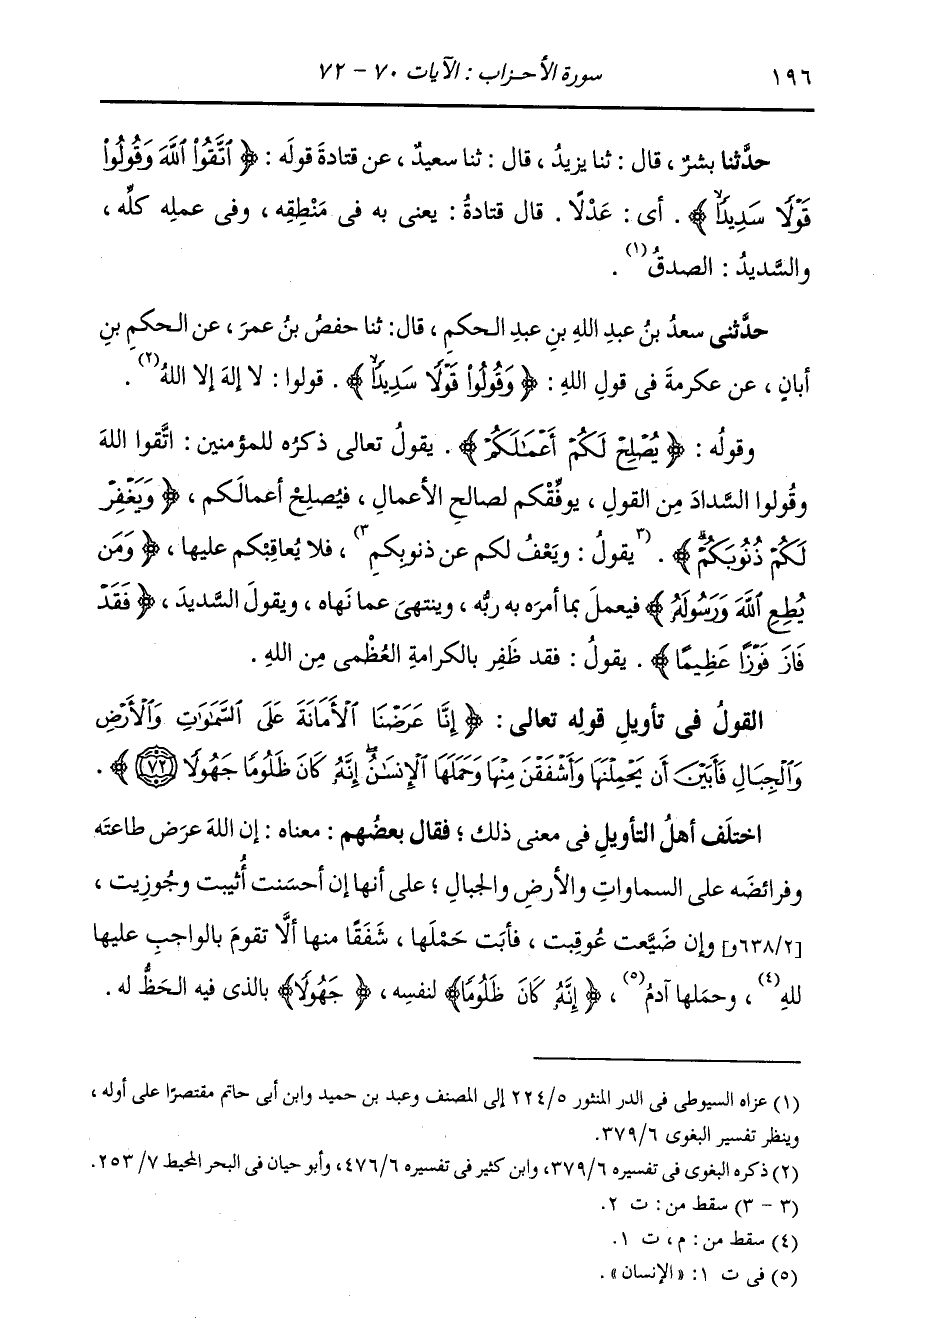 ١٩٦ سورة الأحزاب : الآيات ٧٠ - ٧٢
حدَّثنا بشرٌ ، قال : ثنا يزيدُ ، قال : ثنا سعيدٌ ، عن قتادةَ قولَه : ﴿ ٱتَّقُوا۟ ٱللَّهَ وَقُولُوا۟
قَوْلًا سَدِيدًا ﴾ . أى : عَدْلًا . قال قتادةُ : يعنى به فى مَنْطِقِه ، وفى عملِه كلِّه ،
والسَّديدُ : الصدقُ(١) .
حدَّثنى سعدُ بنُ عبدِ اللهِ بنِ عبدِ الحكمِ ، قال : ثنا حفصُ بنُ عمرَ ، عن الحكمِ بنِ
أبانٍ ، عن عكرمةَ فى قولِ اللهِ : ﴿ وَقُولُوا۟ قَوْلًا سَدِيدًا ﴾ . قولوا : لا إلهَ إلا اللهُ(٢) .
وقولُه : ﴿ يُصْلِحْ لَكُمْ أَعْمَـٰلَكُمْ ﴾ . يقولُ تعالى ذكرُه للمؤمنين : اتَّقوا اللهَ
وقُولوا السَّدادَ مِن القولِ ، يوفِّقْكم لصالحِ الأعمالِ ، فيُصلِحْ أعمالَكم ، ﴿ وَيَغْفِرْ
لَكُمْ ذُنُوبَكُمْ ﴾ . (٣يقولُ : ويَعْفُ لكم عن ذنوبِكم٣) ، فلا يُعاقِبْكم عليها ، ﴿ وَمَن
يُطِعِ ٱللَّهَ وَرَسُولَهُۥ ﴾ فيعملَ بما أمرَه به ربُّه ، وينتهىَ عما نَهاه ، ويقولَ السَّديدَ ، ﴿ فَقَدْ
فَازَ فَوْزًا عَظِيمًا ﴾ . يقولُ : فقد ظَفِر بالكرامةِ العُظْمى مِن اللهِ .
القولُ فى تأويلِ قولِه تعالى : ﴿ إِنَّا عَرَضْنَا ٱلْأَمَانَةَ عَلَى ٱلسَّمَـٰوَٰتِ وَٱلْأَرْضِ
وَٱلْجِبَالِ فَأَبَيْنَ أَن يَحْمِلْنَهَا وَأَشْفَقْنَ مِنْهَا وَحَمَلَهَا ٱلْإِنسَـٰنُ ۖ إِنَّهُۥ كَانَ ظَلُومًا جَهُولًا ٧٢ ﴾ .
اختلَف أهلُ التأويلِ فى معنى ذلك ؛ فقال بعضُهم : معناه : إن اللهَ عرَض طاعتَه
وفرائضَه على السماواتِ والأرضِ والجبالِ ؛ على أنها إن أحسَنت أُثيبت وجُوزِيت ،
[٦٣٨/٢و] وإن ضَيَّعت عُوقِبت ، فأبَت حَمْلَها ، شَفَقًا منها ألَّا تقومَ بالواجبِ عليها
للهِ(٤) ، وحمَلها آدمُ(٥) ، ﴿ إِنَّهُۥ كَانَ ظَلُومًا ﴾ لنفسِه ، ﴿ جَهُولًا ﴾ بالذى فيه الحَظُّ له .
(١) عزاه السيوطى فى الدر المنثور ٢٢٤/٥ إلى المصنف وعبد بن حميد وابن أبى حاتم مقتصرًا على أوله ،
وينظر تفسير البغوى ٣٧٩/٦.
(٢) ذكره البغوى فى تفسيره ٣٧٩/٦، وابن كثير فى تفسيره ٤٧٦/٦، وأبو حيان فى البحر المحيط ٢٥٣/٧.
(٣ - ٣) سقط من : ت ٢.
(٤) سقط من : م ، ت ١.
(٥) فى ت ١: « الإنسان » .